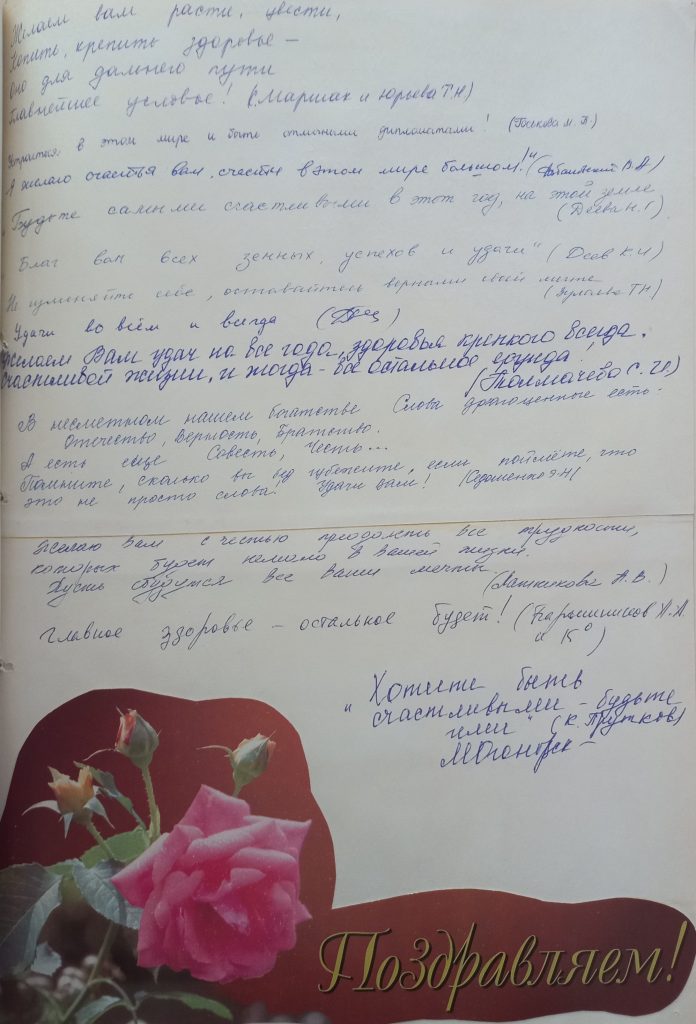 Желаем вам расти, цвести,
Копить, крепить здоровье –
Оно для дальнего пути
Главнейшее условье! (С. Маршак и Юрьева Т.Н)
в этом мире и быть отличными дипломатами! (М. В.)
Я желаю счастья вам, счастья в этом мире большом!" (В. А)
"Будьте самыми счастливыми в этот год, на этой земле
(Деева Н. Г)
Благ вам всех земных, успехов и удачи" (Деев К. И)
Не изменяйте себе, оставайтесь верными своей мечте
(Т Н)
Удачи во всём и всегда
Желаем Вам удач на все года, здоровья крепкого всегда.
Счастливой жизни, и тогда – все остальное ерунда!
(Толмачева С. И.)
В несметном нашем богатстве Слова драгоценные есть:
Отечество, Верность, Братство.
А есть еще Совесть, Честь...
Помните, сколько вы ни убежите, если поймёте, что
это не просто слова! Удачи вам!
Желаю Вам с честью преодолеть все трудности,
которых будет немало в Вашей жизни.
Пусть сбудутся все Ваши мечты.
(Н. В.)
Главное здоровье – остальное будет! (Парамшиков А.А.
и К°)
"Хотите быть
счастливыми – будьте
ими" (К. Прутков)
Поздравляем!